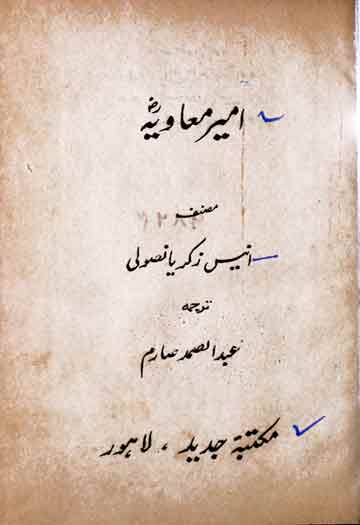 امیر معاویہؓ
مصنف
انیس زکریا نصولی
ترجمہ
عبدالصمد صارم
مکتبۂ جدید، لاہور